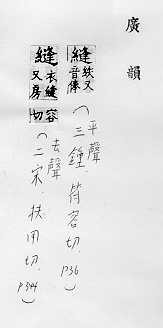 廣韻
縫 紩又音俸 (平聲 三鍾, 符容切. P36)
縫 衣縫又房容切 (去聲 二宋, 扶用切. P344)